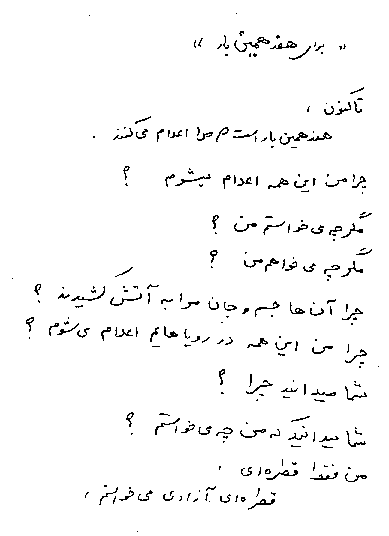 « برای هفدهمین بار »
تاکنون ،
هفدهمین بار است که مرا اعدام می‌کنند .
چرا من این همه اعدام میشوم ؟
مگر چه می‌خواستم من ؟
مگر چه می‌خواهم من ؟
چرا آن‌ها جسم و جان مرا به آتش کشیدند ؟
چرا من این همه در رویاهایم اعدام می‌شوم ؟
شما میدانید چرا ؟
شما میدانید که من چه می‌خواستم ؟
من فقط قطره‌ای ،
قطره‌ای آزادی می‌خواستم ،